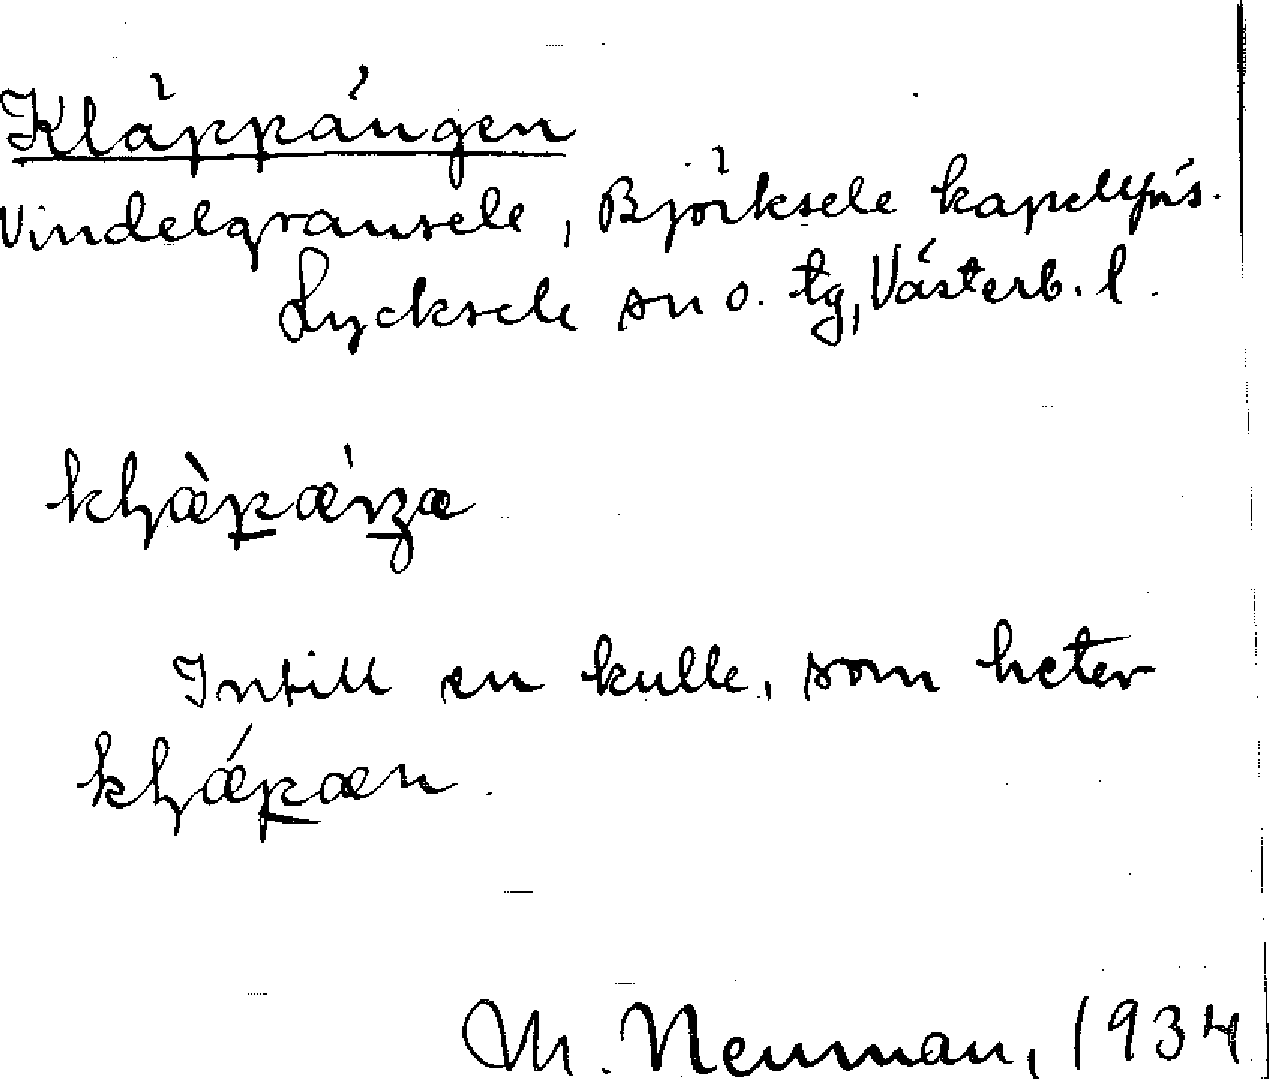 Kläppängen
Vindelgransele, Björksele kapellförs.
Lycksele sn o. tg, Västerb. l.
Intill en kulle, som heter
M. Neuman, 1934